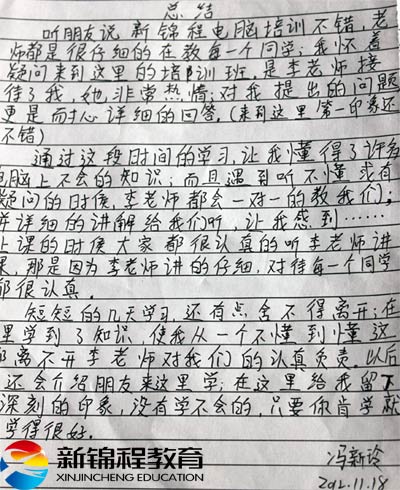 总结
听朋友说新锦程电脑培训不错,老
师都是很仔细的在教每一个同学;我怀着
疑问来到这里的培训班,是李老师接
待了我,她非常热情;对我提出的问题
更是耐心详细的回答。(来到这里第一印象还
不错)
通过这段时间的学习,让我懂得了许多
电脑上不会的知识;而且遇到听不懂或有
疑问的时候,李老师都会一对一的教我们,
并详细的讲解给我们听,让我感到……
上课的时候大家都很认真的听李老师讲
课,那是因为李老师讲的仔细,对待每一个同学
都很认真。
短短的几天学习,还有点舍不得离开;在
里学到了知识,使我从一个不懂到懂这
都离不开李老师对我们的认真负责。以后
还会介绍朋友来这里学;在这里给我留下
深刻的印象,没有学不会的,只要你肯学就
学得很好。
冯新玲
2012.11.18
新锦程教育
XINJINCHENG EDUCATION